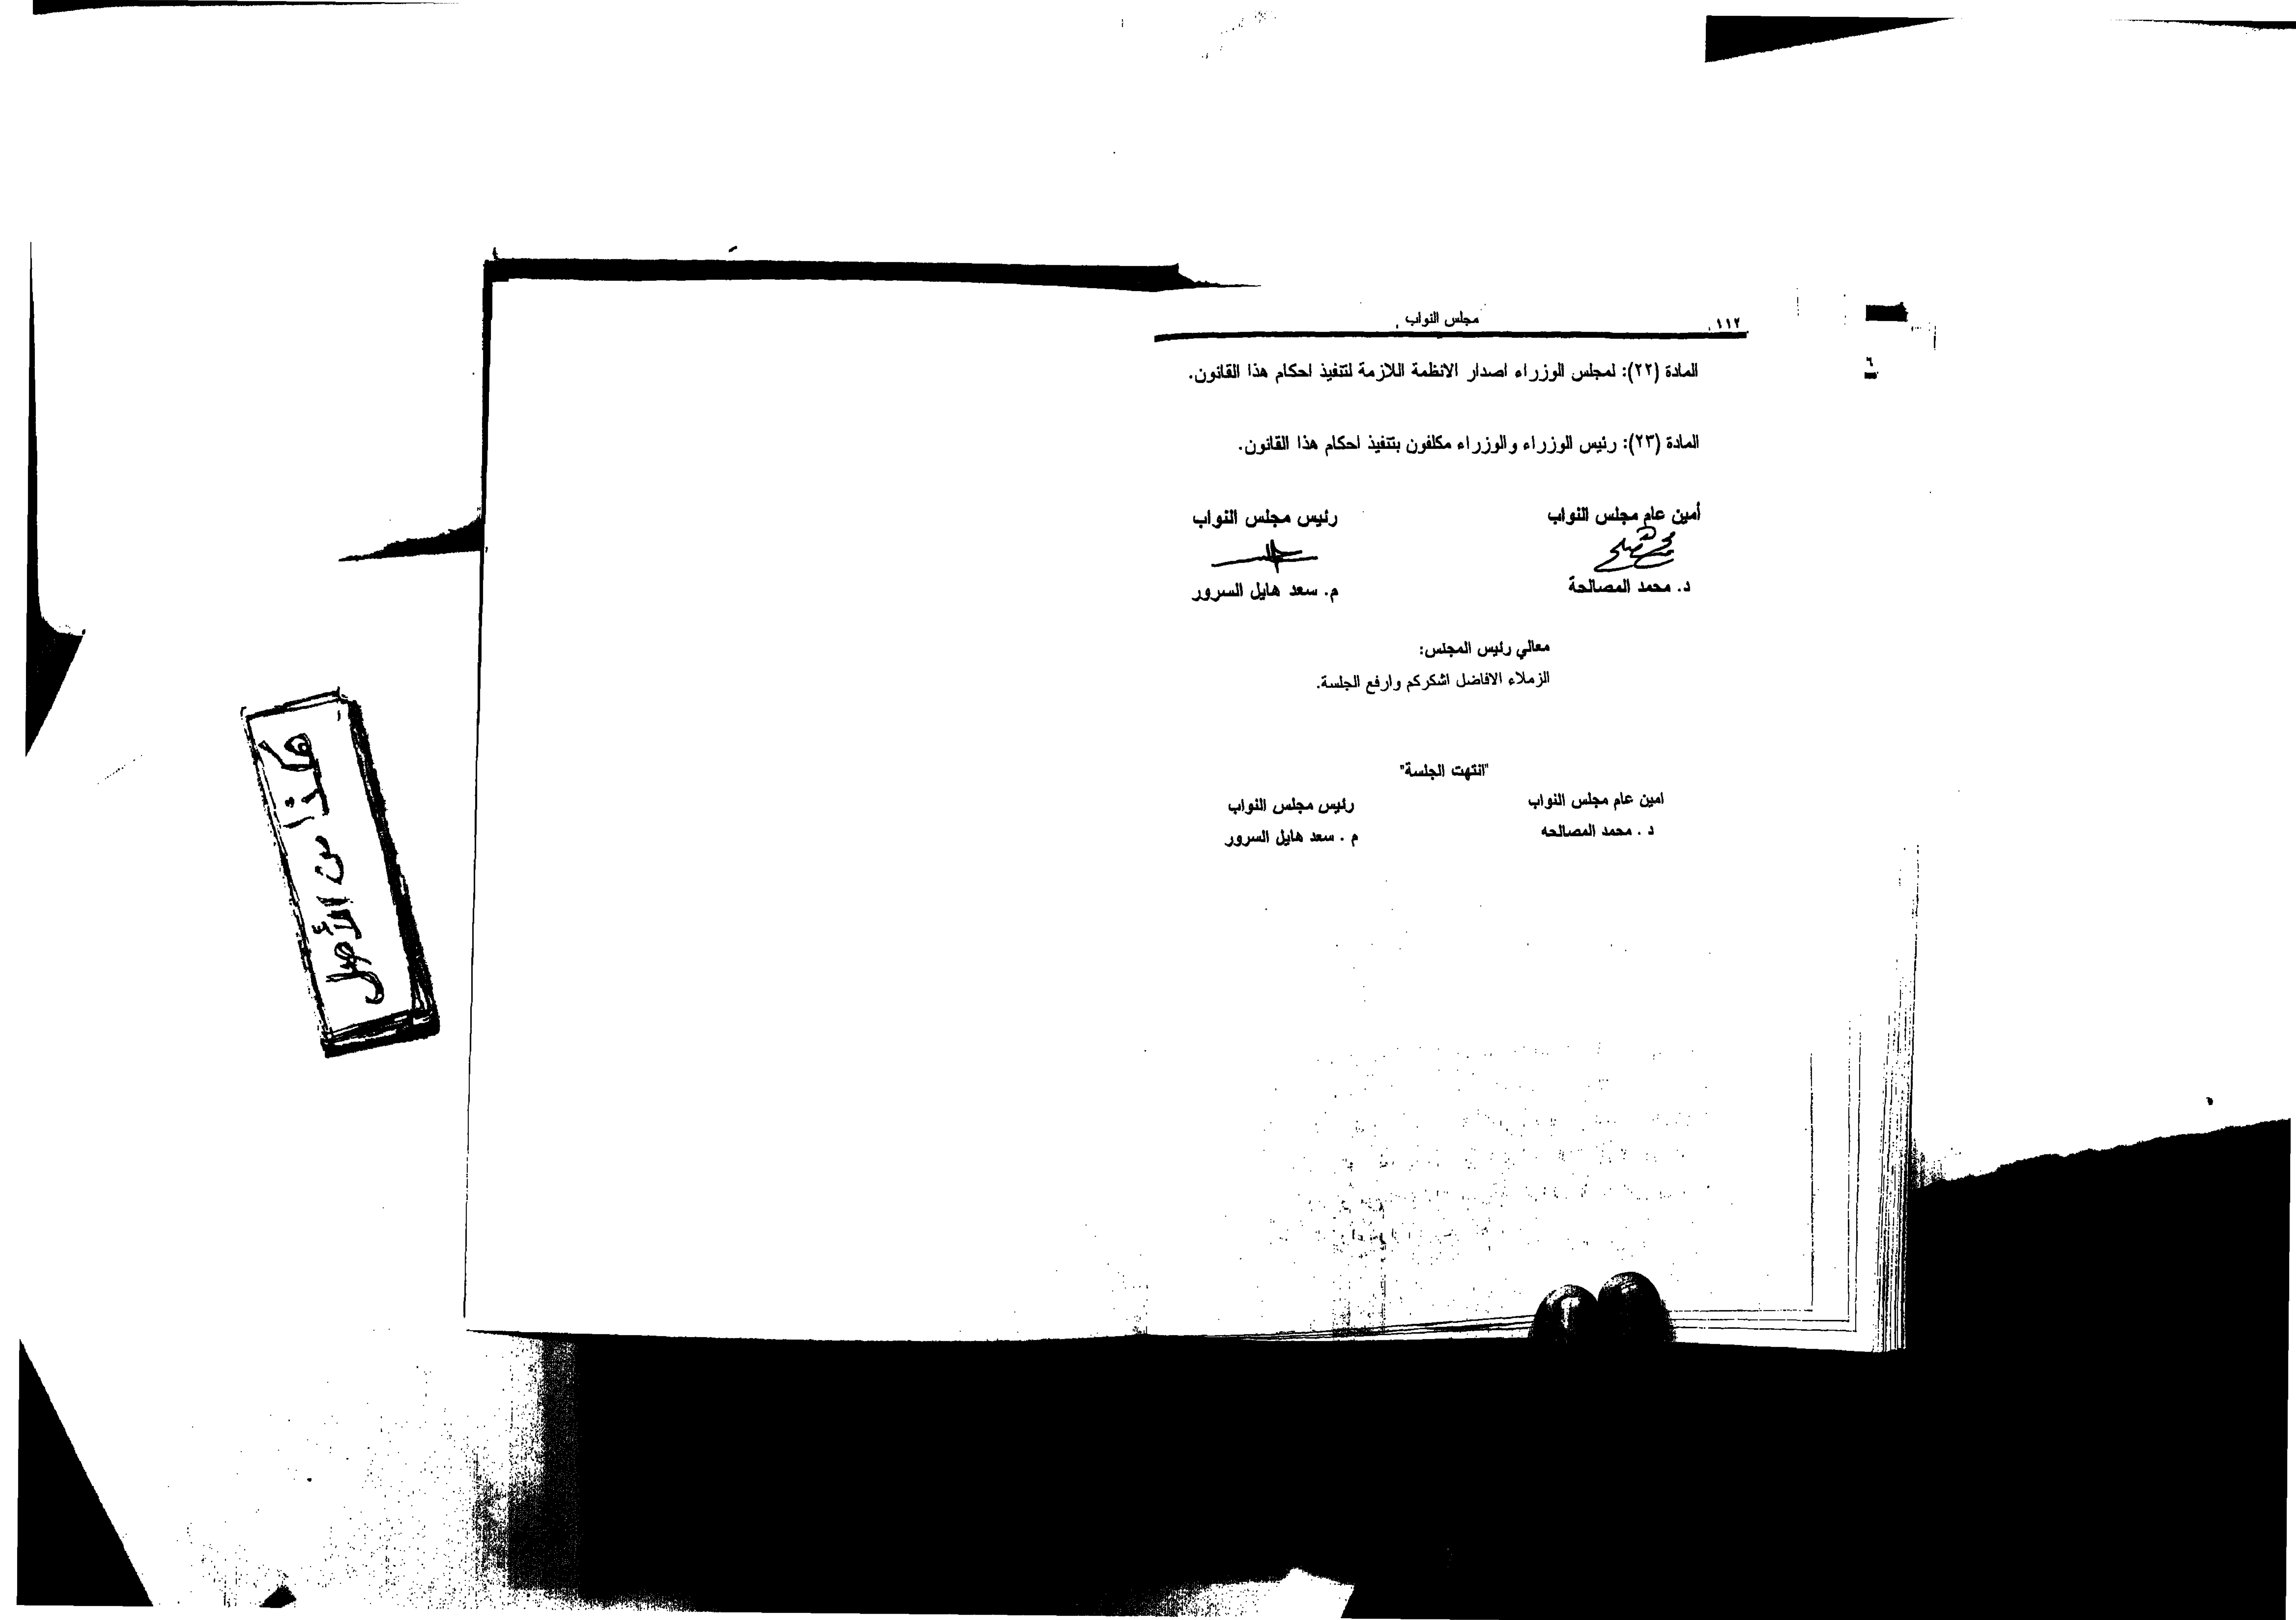 ١١٢
مجلس النواب
٦
المادة (٢٢): لمجلس الوزراء اصدار الانظمة اللازمة لتنفيذ احكام هذا القانون.
المادة (٢٣): رئيس الوزراء والوزراء مكلفون بتنفيذ احكام هذا القانون.
أمين عام مجلس النواب
رئيس مجلس النواب
د. محمد المصالحة
م. سعد هايل السرور
معالي رئيس المجلس:
الزملاء الافاضل اشكركم وارفع الجلسة.
"انتهت الجلسة"
امين عام مجلس النواب
رئيس مجلس النواب
د . محمد المصالحه
م . سعد هايل السرور
هكذا من الأصل